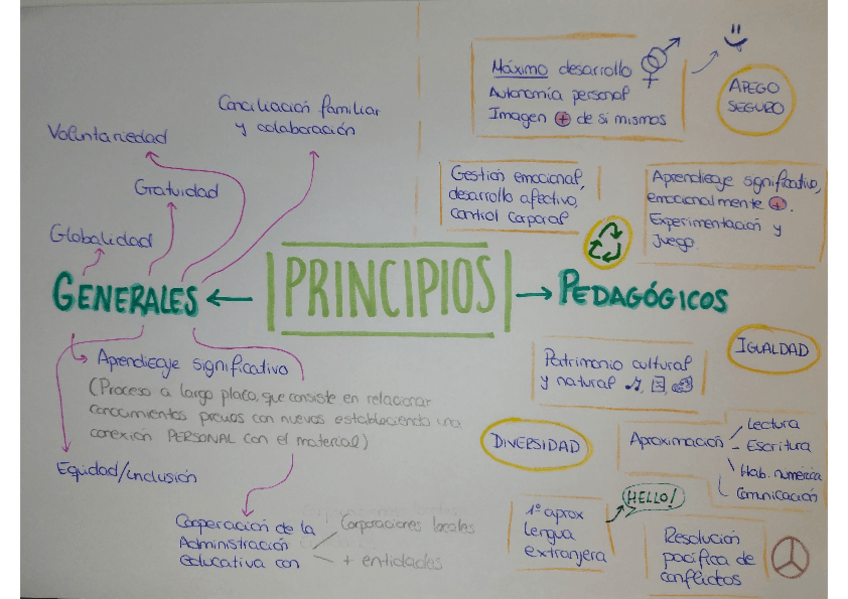 Máximo desarrollo
Autonomía personal
Imagen + de sí mismos
APEGO
SEGURO
Conciliación familiar
y colaboración
Voluntariedad
Gratuidad
Globalidad
Gestión emocional,
desarrollo afectivo,
control corporal
Aprendizaje significativo,
emocionalmente +.
Experimentación y
Juego.
GENERALES
PRINCIPIOS
PEDAGÓGICOS
Aprendizaje significativo
(Proceso a largo plazo, que consiste en relacionar
conocimientos previos con nuevos estableciendo una
conexión PERSONAL con el material)
Equidad/inclusión
Cooperación de la
Administración
educativa con
Corporaciones locales
+ entidades
Patrimonio cultural
y natural
IGUALDAD
DIVERSIDAD
Aproximación
Lectura
Escritura
Hab. numérica
Comunicación
1ª aprox
lengua
extranjera
HELLO!
Resolución
pacífica de
conflictos